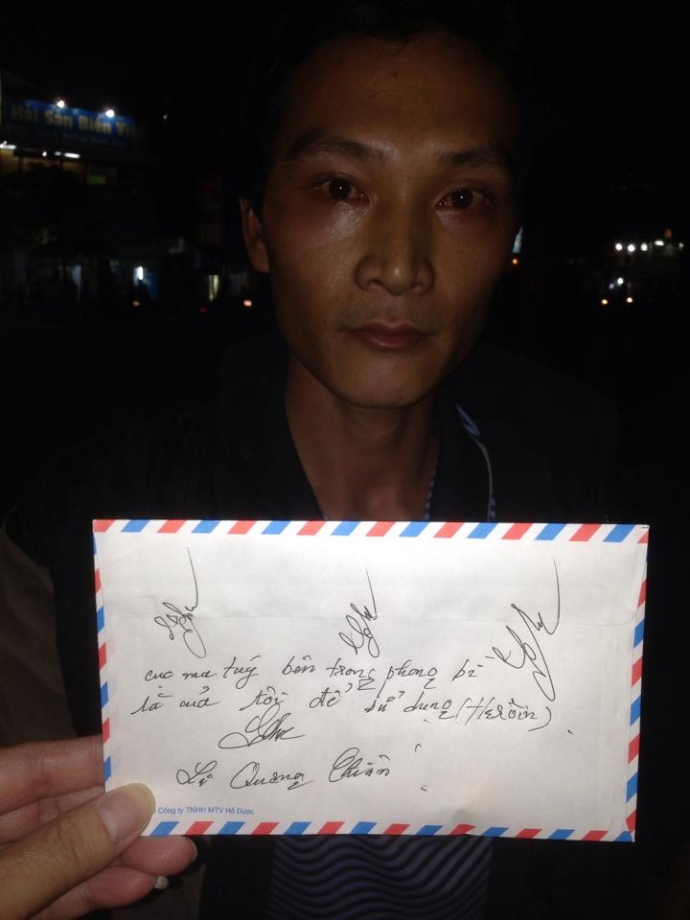 Hải Sản Biển
cục ma túy bên trong phong bì
là của tôi để sử dụng (Herôin)
Quang
Công ty TNHH MTV Hồ Dược